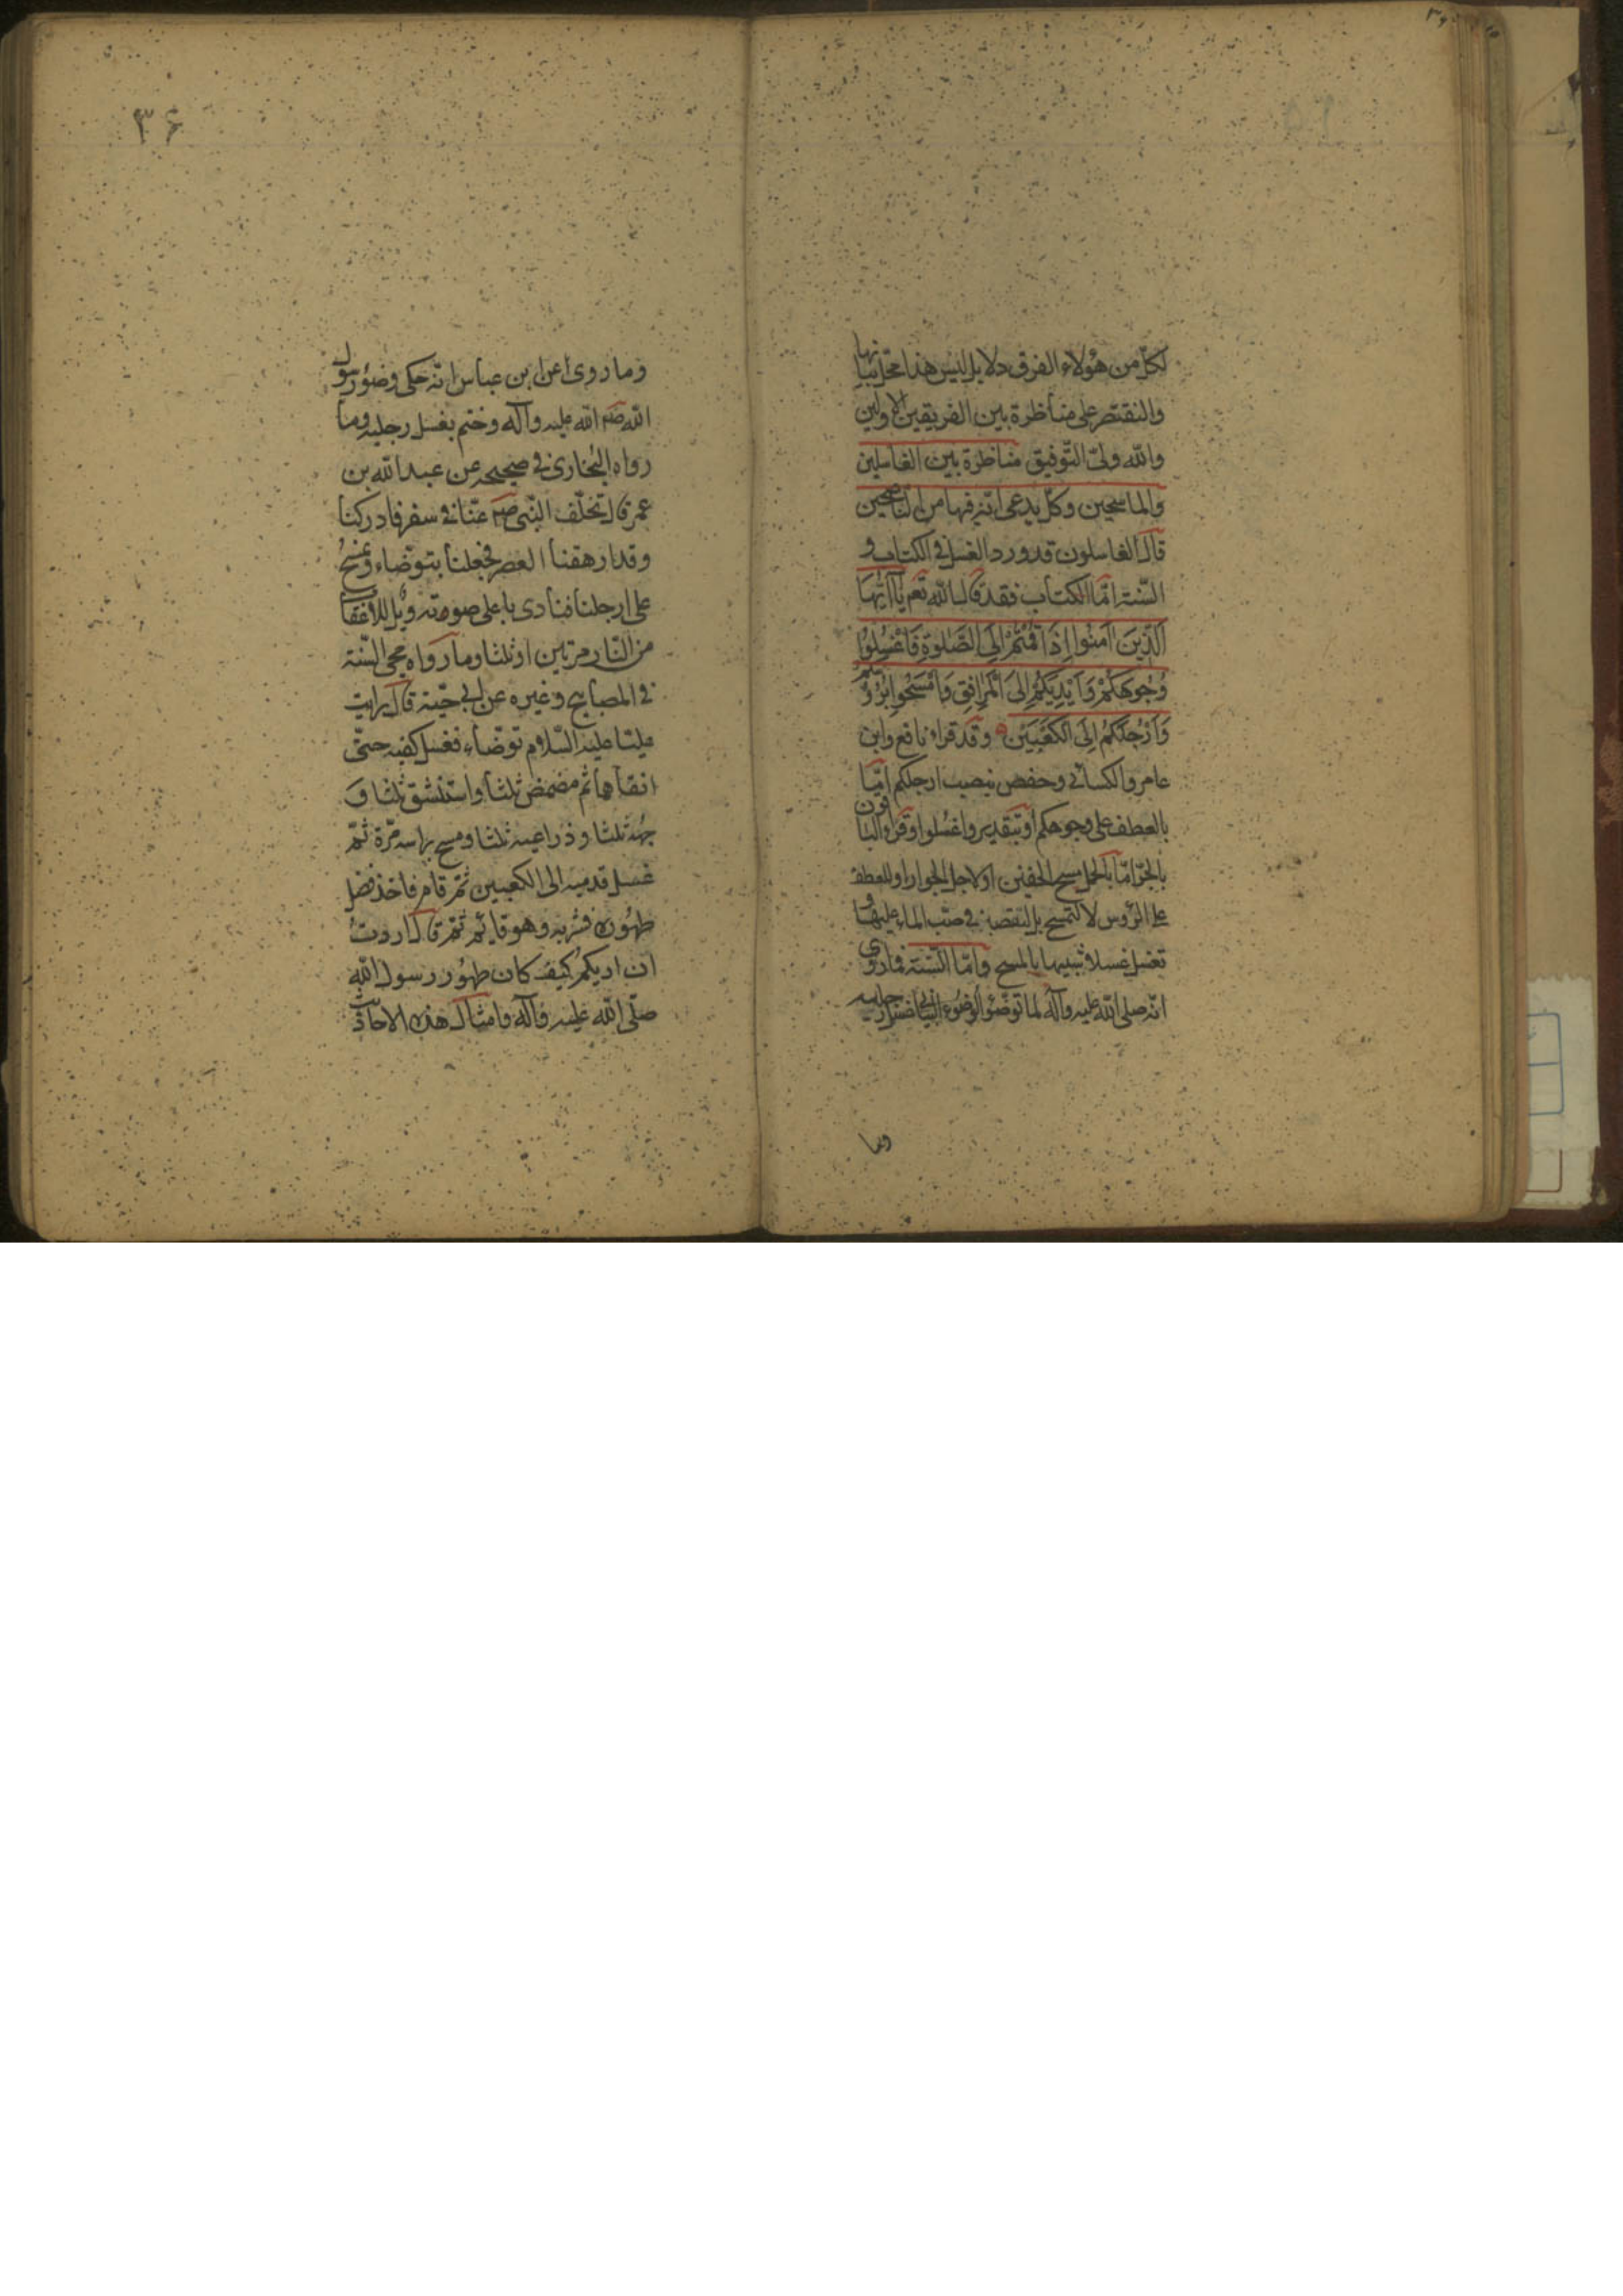 لكل من هؤلاء الفرق دلايل ليس هذا محل بيانها
والنقتصر على مناظرة بين الفريقين الاولين
والله ولىّ التّوفيق مناظرة بين الغاسلين
والماسحين وكل يدعى انّه فيها من النّاصحين
قال الغاسلون قدورد الغسل فى الكتاب و
السّنة امّا الكتاب فقد قال الله تعم يَا اَيُّهَا
الَّذِينَ اٰمَنُوا اِذَا قُمْتُمْ اِلَى الصَّلٰوةِ فَاغْسِلُوا
وُجُوهَكُمْ وَاَيْدِيَكُمْ اِلَى الْمَرَافِقِ وَامْسَحُوا بِرُؤُسِكُمْ
وَاَرْجُلَكُمْ اِلَى الْكَعْبَيْنِ وقد قراء نافع وابن
عامر والكسائى وحفص بنصب ارجلكم امّا
بالعطف على وجوهكم او بتقدير واغسلوا وقرا الباقون
بالجرّ امّا بالحمل مسح الخفين او لاجل الجوار او للعطف
على الرّوس لا لتمسح بل لنقصد فى صبّ الماء عليها و
تغسل غسلا شبيها بالمسح وامّا السّنة فما روى
انّه صلى الله عليه وآله لما توضّؤ الوضوء البيانى غسل رجليه
وما
٣۶
وما روى عن ابن عباس انّه حكى وضوء رسول
الله صلى الله عليه وآله وختم بغسل رجليه وما
رواه البخارى فى صحيحه عن عبد الله بن
عمر قال تخلّف النّبى صم عنّا فى سفر فادركنا
وقد ارهقنا العصر فجعلنا نتوضّاء ونمسح
على ارجلنا فنادى باعلى صوته ويل للاعقاب
من النّار مرّتين او ثلثا وما رواه محيى السّنة
فى المصابيح وغيره عن ابى حيّة قال رايت
عليّا عليه السّلام توضّاء فغسل كفيه حتّى
انقاهما ثم مضمض ثلثا واستنشق ثلثا و
جهه ثلثا وذراعيه ثلثا ومسح براسه مرّة ثمّ
غسل قدميه الى الكعبين ثمّ قام فاخذ فضل
طهوره فشربه وهو قائم ثمّ قال اردت
ان اريكم كيف كان طهور رسول الله
صلّى الله عليه وآله وامثال هذه الاحاديث